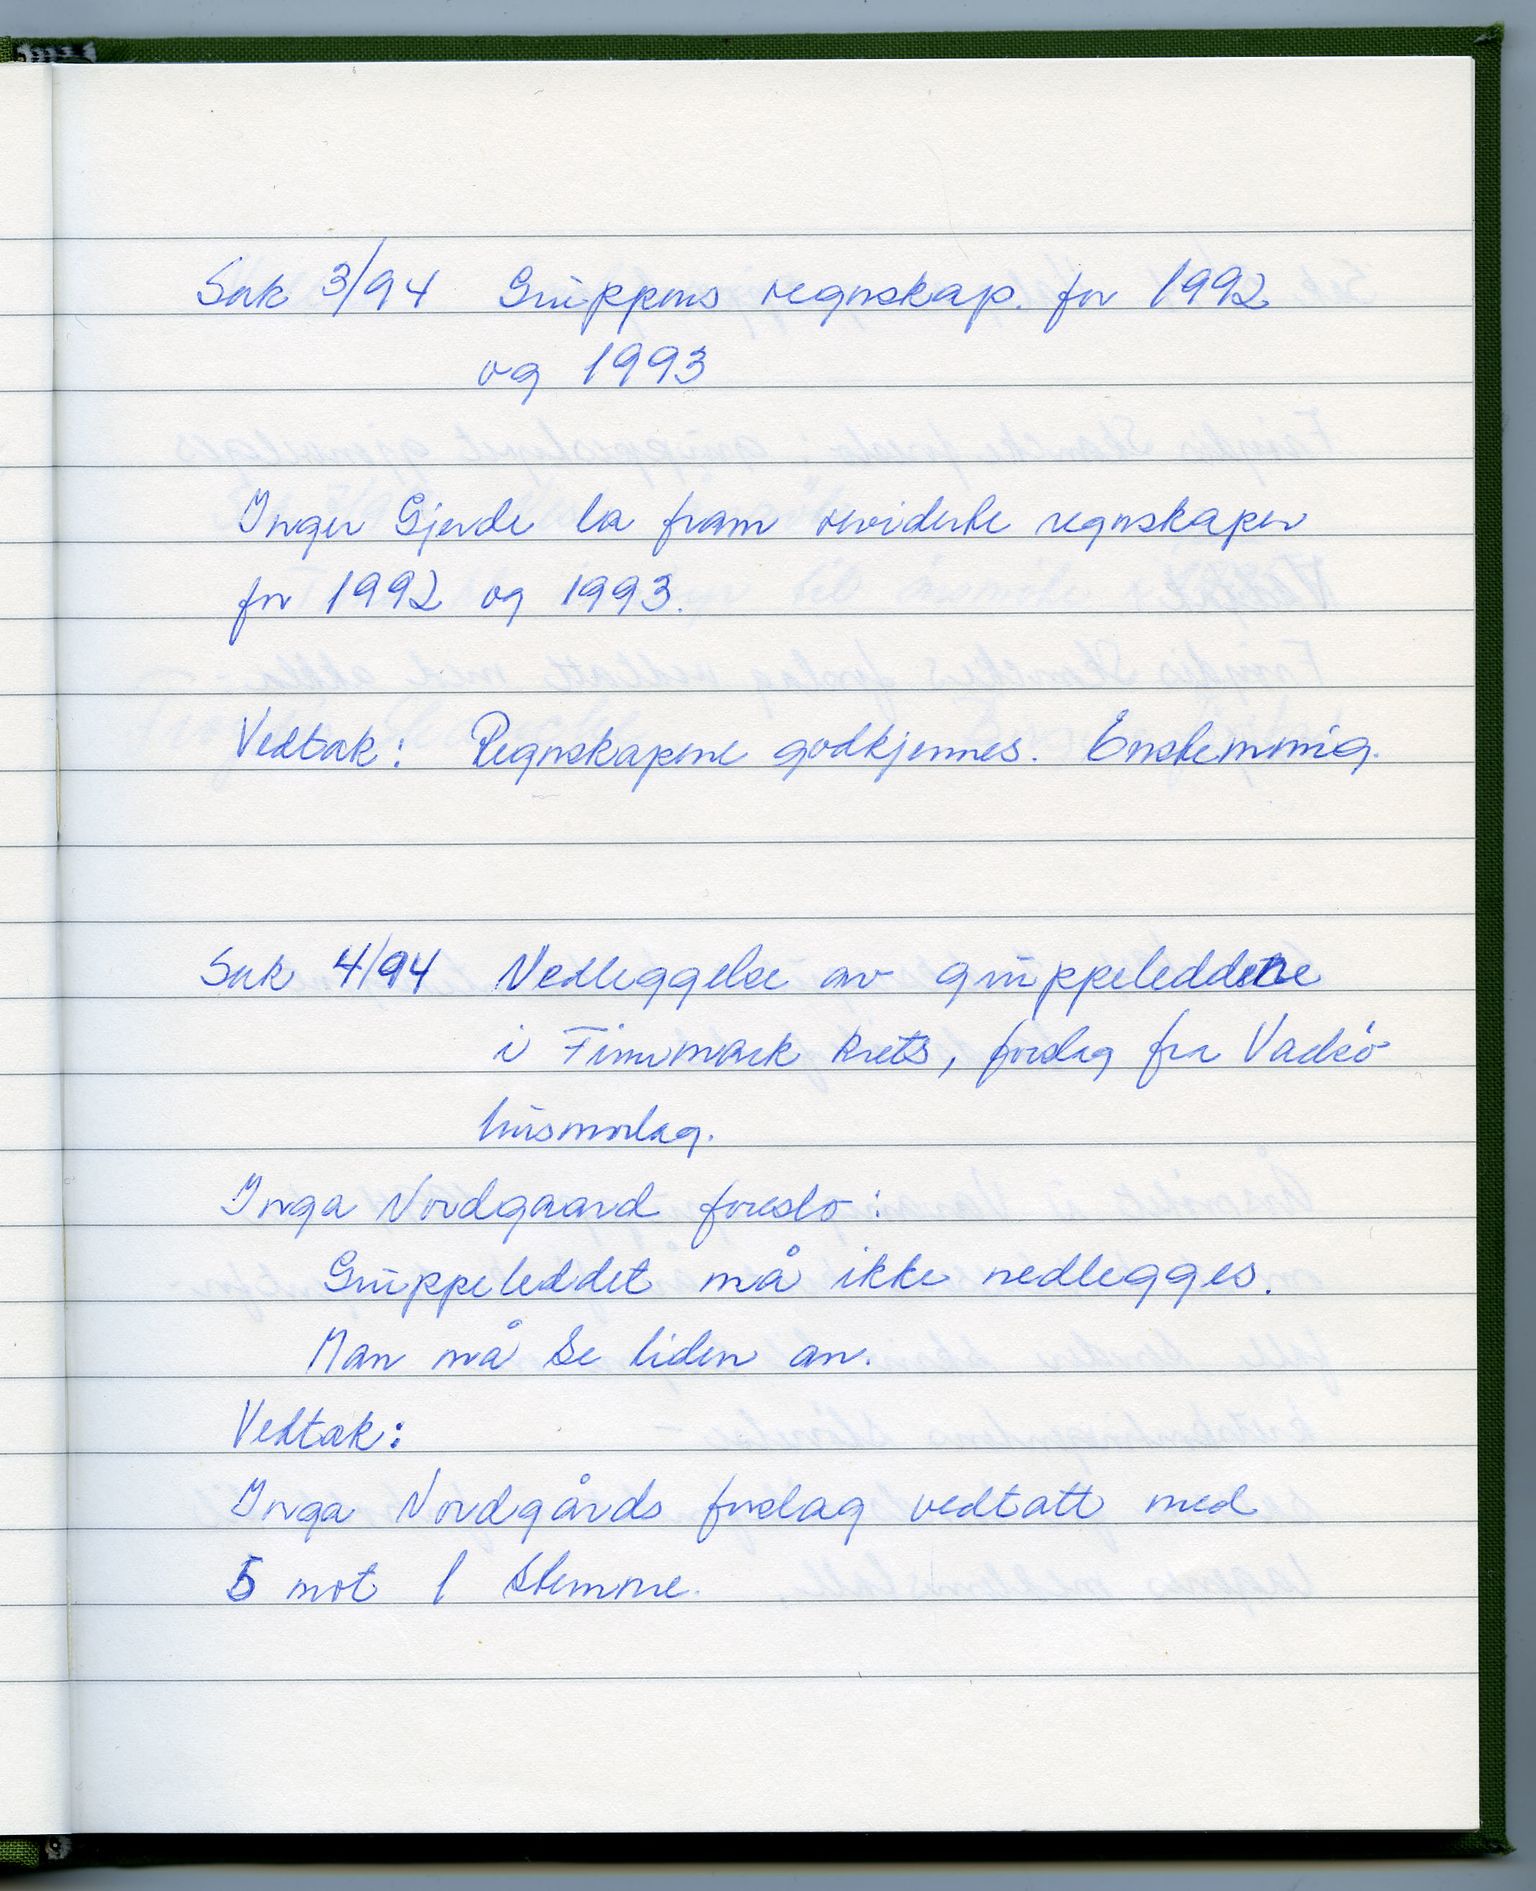 Sak 3/94 Gruppens regnskap. for 1992
og 1993
Inger Gjerde la fram reviderte regnskaper
for 1992 og 1993.
Vedtak: Regnskapene godkjennes. Enstemmig.
Sak 4/94 Nedleggelse av gruppeleddene
i Finnmark krets, forslag fra Vadsö
husmorlag.
Inga Nordgaard foreslo:
Gruppeleddet må ikke nedlegges.
Man må se tiden an.
Vedtak:
Inga Nordgårds forslag vedtatt med
5 mot 1 stemme.